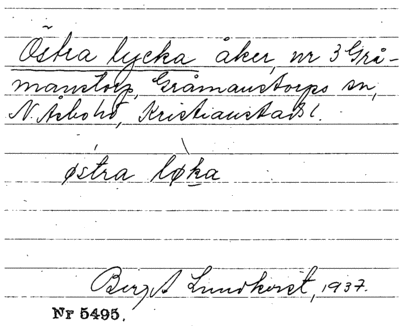 Östra lycka åker, nr 3 Grå-
manstorp, Gråmanstorps sn,
N. Åsbohd, Kristianstads l.
østra lø̀ka
Birgit Lundkvist, 1937.
Nr 5495.